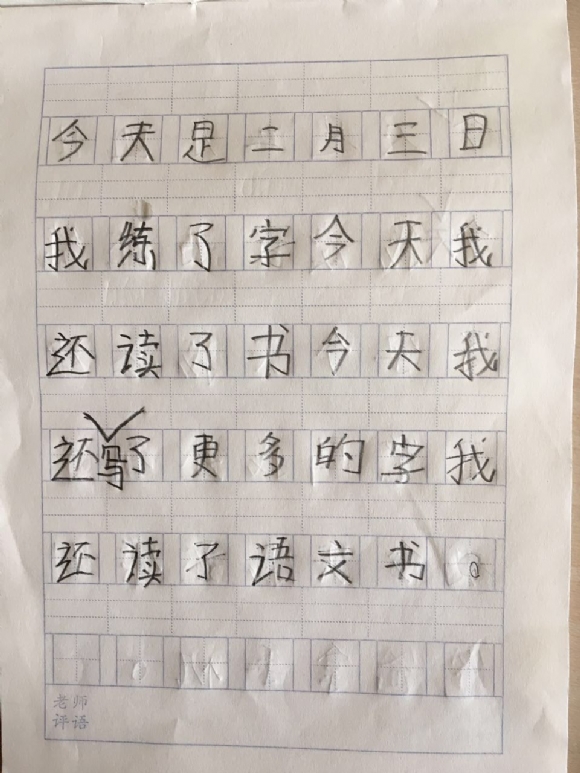 今天是二月三日
我练了字今天我
还读了书今天我
还写了更多的字我
还读了语文书。
老师
评语